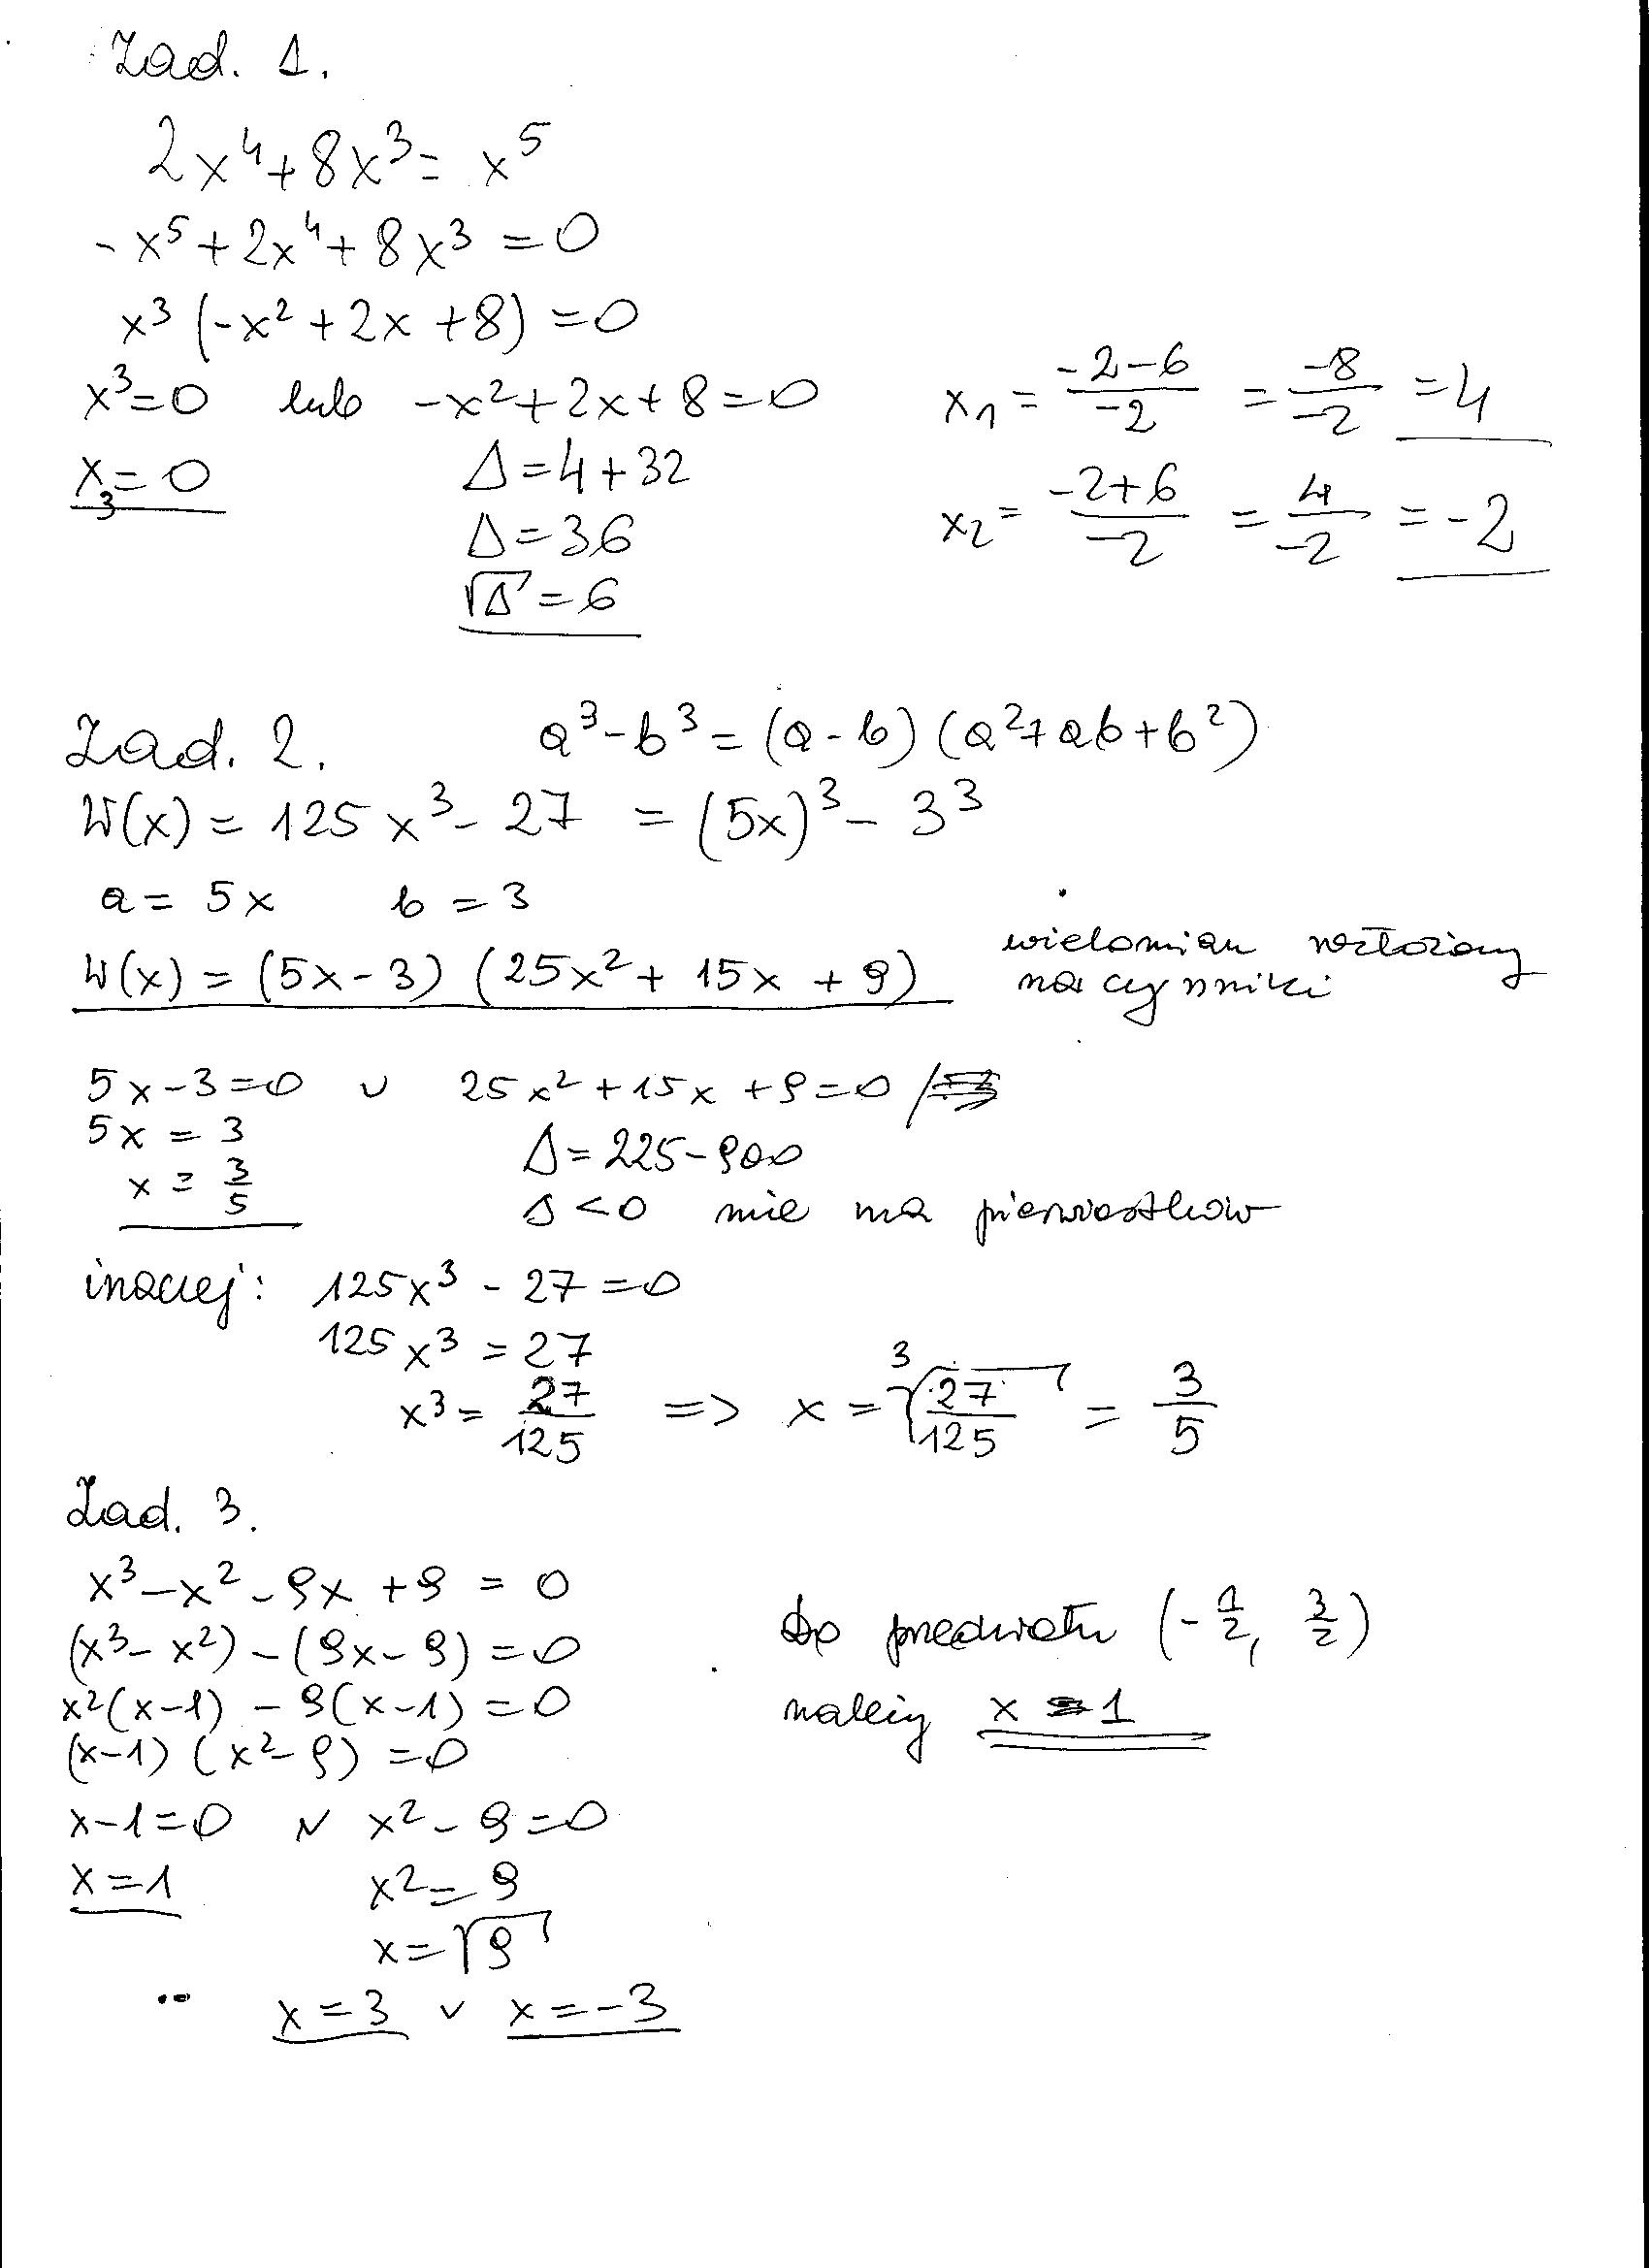 Zad. 1.
2x⁴+8x³= x⁵
-x⁵+2x⁴+8x³=0
x³(-x²+2x+8)=0
x³=0 lub -x²+2x+8=0
x₃=0
Δ=4+32
Δ=36
√Δ=6
x₁= (-2-6)/(-2) = (-8)/(-2) =4
x₂= (-2+6)/(-2) = 4/(-2) =-2
Zad. 2. a³-b³=(a-b)(a²+ab+b²)
W(x)=125x³-27 =(5x)³-3³
a=5x b=3
W(x)=(5x-3)(25x²+15x+9) wielomian rozłożony
na czynniki
5x-3=0 ∪ 25x²+15x+9=0 /
5x=3
x=3/5
Δ=225-900
Δ<0 nie ma pierwiastków
inaczej: 125x³-27=0
125x³=27
x³=27/125 => x=³√(27/125) = 3/5
Zad. 3.
x³-x²-9x+9=0
(x³-x²)-(9x-9)=0
x²(x-1)-9(x-1)=0
(x-1)(x²-9)=0
x-1=0 v x²-9=0
x=1
x²=9
x=√9
x=3 v x=-3
do przedziału (-1/2, 3/2)
należy x=1